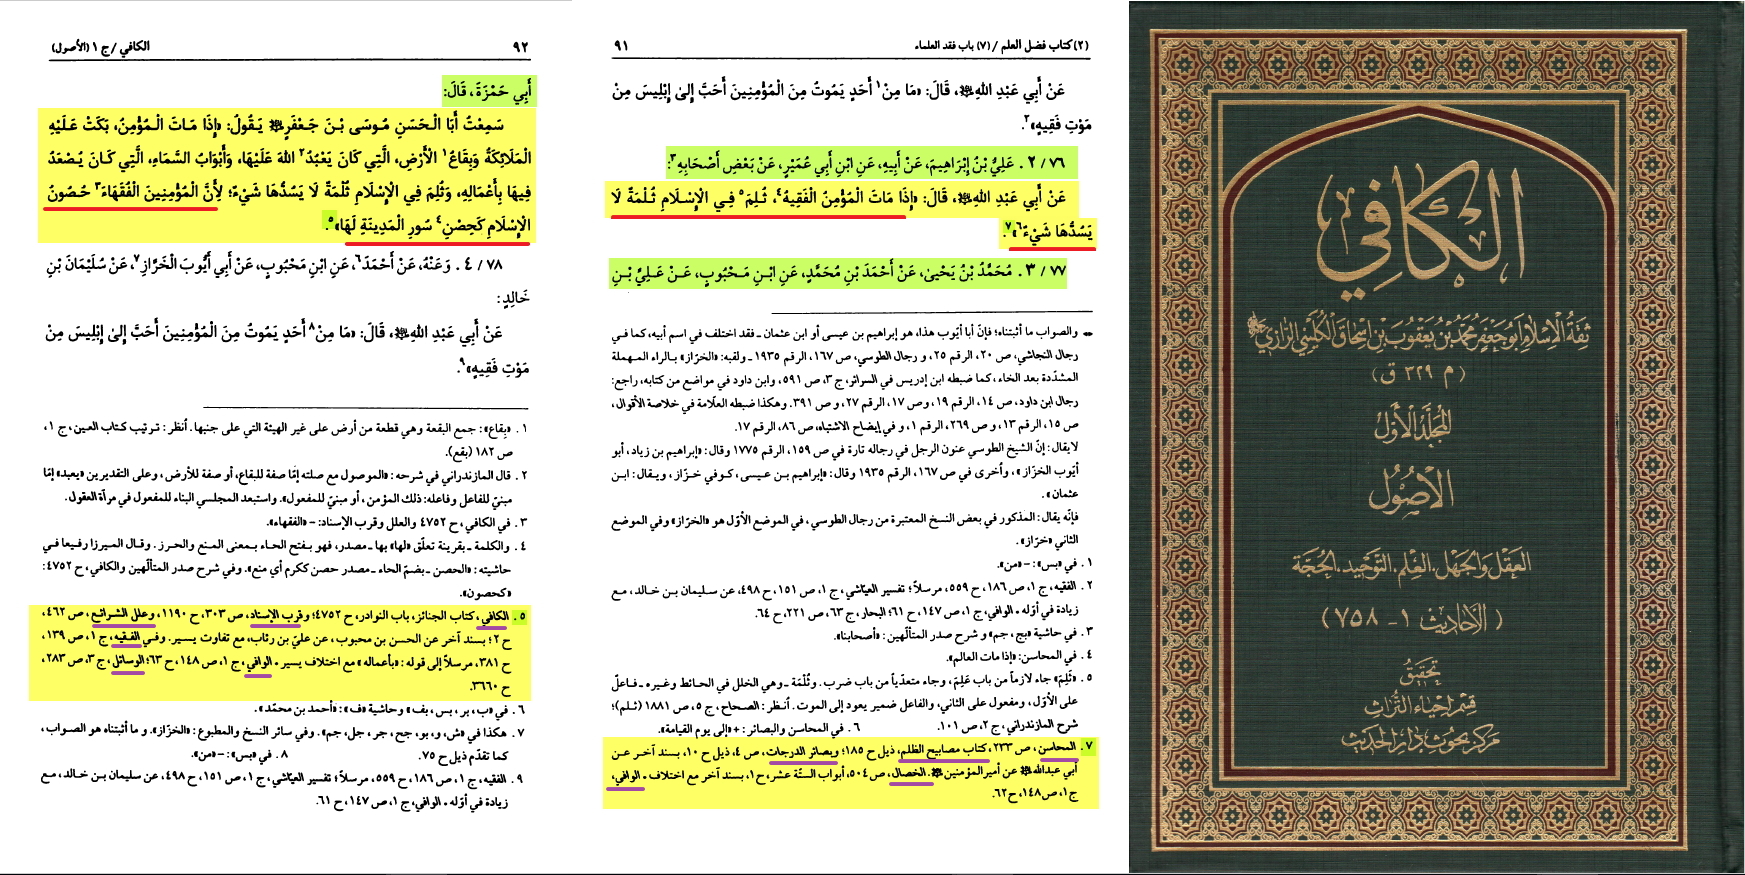 الكافي
ثقة الإسلام أبو جعفر محمد بن يعقوب بن إسحاق الكليني الرازي
(م ٣٢٩ ق)
المجلد الأول
الأصول
العقل والجهل، العلم، التوحيد، الحجة
(الأحاديث ١ - ٧٥٨)
تحقيق
قسم إحياء التراث
مركز بحوث دار الحديث
(٢) كتاب فضل العلم / (٧) باب فقد العلماء ٩١
عَنْ أَبِي عَبْدِ اللهِ ﷺ، قَالَ: «مَا مِنْ١ أَحَدٍ يَمُوتُ مِنَ الْمُؤْمِنِينَ أَحَبَّ إِلىٰ إِبْلِيسَ مِنْ
مَوْتِ فَقِيهٍ»٢.
٧٦ / ٢ . عَلِيُّ بْنُ إِبْرَاهِيمَ، عَنْ أَبِيهِ، عَنِ ابْنِ أَبِي عُمَيْرٍ، عَنْ بَعْضِ أَصْحَابِهِ٣:
عَنْ أَبِي عَبْدِ اللهِ ﷺ، قَالَ: «إِذَا مَاتَ الْمُؤْمِنُ الْفَقِيهُ٤، ثُلِمَ٥ فِي الْإِسْلَامِ ثُلْمَةٌ لَا
يَسُدُّهَا شَيْءٌ٦»٧.
٧٧ / ٣ . مُحَمَّدُ بْنُ يَحْيىٰ، عَنْ أَحْمَدَ بْنِ مُحَمَّدٍ، عَنِ ابْنِ مَحْبُوبٍ، عَنْ عَلِيِّ بْنِ
والصواب ما أثبتناه؛ فإنّ أبا أيّوب هذا، هو إبراهيم بن عيسى أو ابن عثمان ـ فقد اختلف في اسم أبيه، كما في
رجال النجاشي، ص ٢٠، الرقم ٢٥، و رجال الطوسي، ص ١٦٧، الرقم ١٩٣٥ ـ ولقبه: «الخرّاز» بالراء المهملة
المشدّدة بعد الخاء، كما ضبطه ابن إدريس في السرائر، ج ٣، ص ٥٩١، وابن داود في مواضع من كتابه، راجع:
رجال ابن داود، ص ١٤، الرقم ١٩، وص ١٧، الرقم ٢٧، و ص ٣٩١. وهكذا ضبطه العلّامة في خلاصة الأقوال،
ص ١٥، الرقم ١٣، و ص ٢٦٩، الرقم ١، و في إيضاح الاشتباه، ص ٨٦، الرقم ١٧.
لا يقال: إنّ الشيخ الطوسي عنون الرجل في رجاله تارة في ص ١٥٩، الرقم ١٧٧٥ وقال: «إبراهيم بن زياد، أبو
أيّوب الخزّاز»، وأخرى في ص ١٦٧، الرقم ١٩٣٥ وقال: «إبراهيم بن عيسى، كوفي خزّاز، ويقال: ابن
عثمان».
فإنّه يقال: المذكور في بعض النسخ المعتبرة من رجال الطوسي، في الموضع الأوّل هو «الخرّاز» وفي الموضع
الثاني «خرّاز».
١ . في «بس»: ـ «من».
٢ . الفقيه، ج ١، ص ١٨٦، ح ٥٥٩، مرسلاً؛ تفسير العيّاشي، ج ١، ص ١٥١، ح ٤٩٨، عن سليمان بن خالد، مع
زيادة في أوّله. الوافي، ج ١، ص ١٤٧، ح ٦١؛ البحار، ج ٦٣، ص ٢٢١، ح ٦٤.
٣ . في حاشية «بج، جم» و شرح صدر المتألّهين: «أصحابنا».
٤ . في المحاسن: «إذا مات العالم».
٥ . «ثَلِمَ» جاء لازماً من باب عَلِمَ، وجاء متعدّياً من باب ضرب. وثُلْمَة ـ وهي الخلل في الحائط وغيره ـ فاعل
على الأوّل، ومفعول على الثاني، والفاعل ضمير يعود إلى الموت. اُنظر: الصحاح، ج ٥، ص ١٨٨١ (ثلم)؛
شرح المازندراني، ج ٢، ص ١٠١. ٦ . في المحاسن والبصائر: + «إلى يوم القيامة».
٧ . المحاسن، ص ٢٣٣، كتاب مصابيح الظلم، ذيل ح ١٨٥؛ وبصائر الدرجات، ص ٤، ذيل ح ١٠، بسند آخر عن
أبي عبدالله ﷺ عن أمير المؤمنين ﷺ. الخصال، ص ٥٠٤، أبواب الستّة عشر، ح ١، بسند آخر مع اختلاف. الوافي،
ج ١، ص ١٤٨، ح ٦٢.
٩٢ الكافي / ج ١ (الأصول)
أَبِي حَمْزَةَ، قَالَ:
سَمِعْتُ أَبَا الْحَسَنِ مُوسَى بْنَ جَعْفَرٍ ﷺ يَقُولُ: «إِذَا مَاتَ الْمُؤْمِنُ، بَكَتْ عَلَيْهِ
الْمَلَائِكَةُ وَبِقَاعُ١ الْأَرْضِ، الَّتِي كَانَ يَعْبُدُ٢ اللهَ عَلَيْهَا، وَأَبْوَابُ السَّمَاءِ، الَّتِي كَانَ يُصْعَدُ
فِيهَا بِأَعْمَالِهِ، وَثُلِمَ فِي الْإِسْلَامِ ثُلْمَةٌ لَا يَسُدُّهَا شَيْءٌ؛ لِأَنَّ الْمُؤْمِنِينَ الْفُقَهَاءَ٣ حُصُونُ
الْإِسْلَامِ كَحِصْنِ٤ سُورِ الْمَدِينَةِ لَهَا»٥.
٧٨ / ٤ . وَعَنْهُ، عَنْ أَحْمَدَ٦، عَنِ ابْنِ مَحْبُوبٍ، عَنْ أَبِي أَيُّوبَ الْخَرَّازِ٧، عَنْ سُلَيْمَانَ بْنِ
خَالِدٍ:
عَنْ أَبِي عَبْدِ اللهِ ﷺ، قَالَ: «مَا مِنْ٨ أَحَدٍ يَمُوتُ مِنَ الْمُؤْمِنِينَ أَحَبَّ إِلىٰ إِبْلِيسَ مِنْ
مَوْتِ فَقِيهٍ»٩.
١ . «بِقاع»: جمع البقعة وهي قطعة من أرض على غير الهيئة التي على جنبها. اُنظر: ترتيب كتاب العين، ج ١،
ص ١٨٢ (بقع).
٢ . قال المازندراني في شرحه: «الموصول مع صلته إمّا صفة للبقاع، أو صفة للأرض، وعلى التقديرين «يعبد» إمّا
مبنيّ للفاعل وفاعله: ذلك المؤمن، أو مبنيّ للمفعول». واستبعد المجلسي البناء للمفعول في مرآة العقول.
٣ . في الكافي، ح ٤٧٥٢ والعلل وقرب الإسناد: ـ «الفقهاء».
٤ . والكلمة ـ بقرينة تعلّق «لها» بها ـ مصدر، فهو بفتح الحاء بمعنى المنع والحرز. وقال الميرزا رفيعا في
حاشيته: «الحصن ـ بضمّ الحاء ـ مصدر حصن ككرم أي منع». وفي شرح صدر المتألّهين والكافي، ح ٤٧٥٢:
«كحصون».
٥ . الكافي، كتاب الجنائز، باب النوادر، ح ٤٧٥٢؛ وقرب الإسناد، ص ٣٠٣، ح ١١٩٠؛ وعلل الشرائع، ص ٤٦٢،
ح ٢؛ بسند آخر عن الحسن بن محبوب، عن عليّ بن رئاب، مع تفاوت يسير. وفي الفقيه، ج ١، ص ١٣٩،
ح ٣٨١، مرسلاً إلى قوله: «بأعماله» مع اختلاف يسير. الوافي، ج ١، ص ١٤٨، ح ٦٣؛ الوسائل، ج ٣، ص ٢٨٣،
ح ٣٦٦٠.
٦ . في «ب، بر، بس، بف» وحاشية «ف»: «أحمد بن محمّد».
٧ . هكذا في «ش، و، بو، جح، جر، جل، جم». وفي سائر النسخ والمطبوع: «الخزّاز». و ما أثبتناه هو الصواب،
كما تقدّم ذيل ح ٧٥. ٨ . في «بس»: ـ «من».
٩ . الفقيه، ج ١، ص ١٨٦، ح ٥٥٩، مرسلاً؛ تفسير العيّاشي، ج ١، ص ١٥١، ح ٤٩٨، عن سليمان بن خالد، مع
زيادة في أوّله. الوافي، ج ١، ص ١٤٧، ح ٦١.